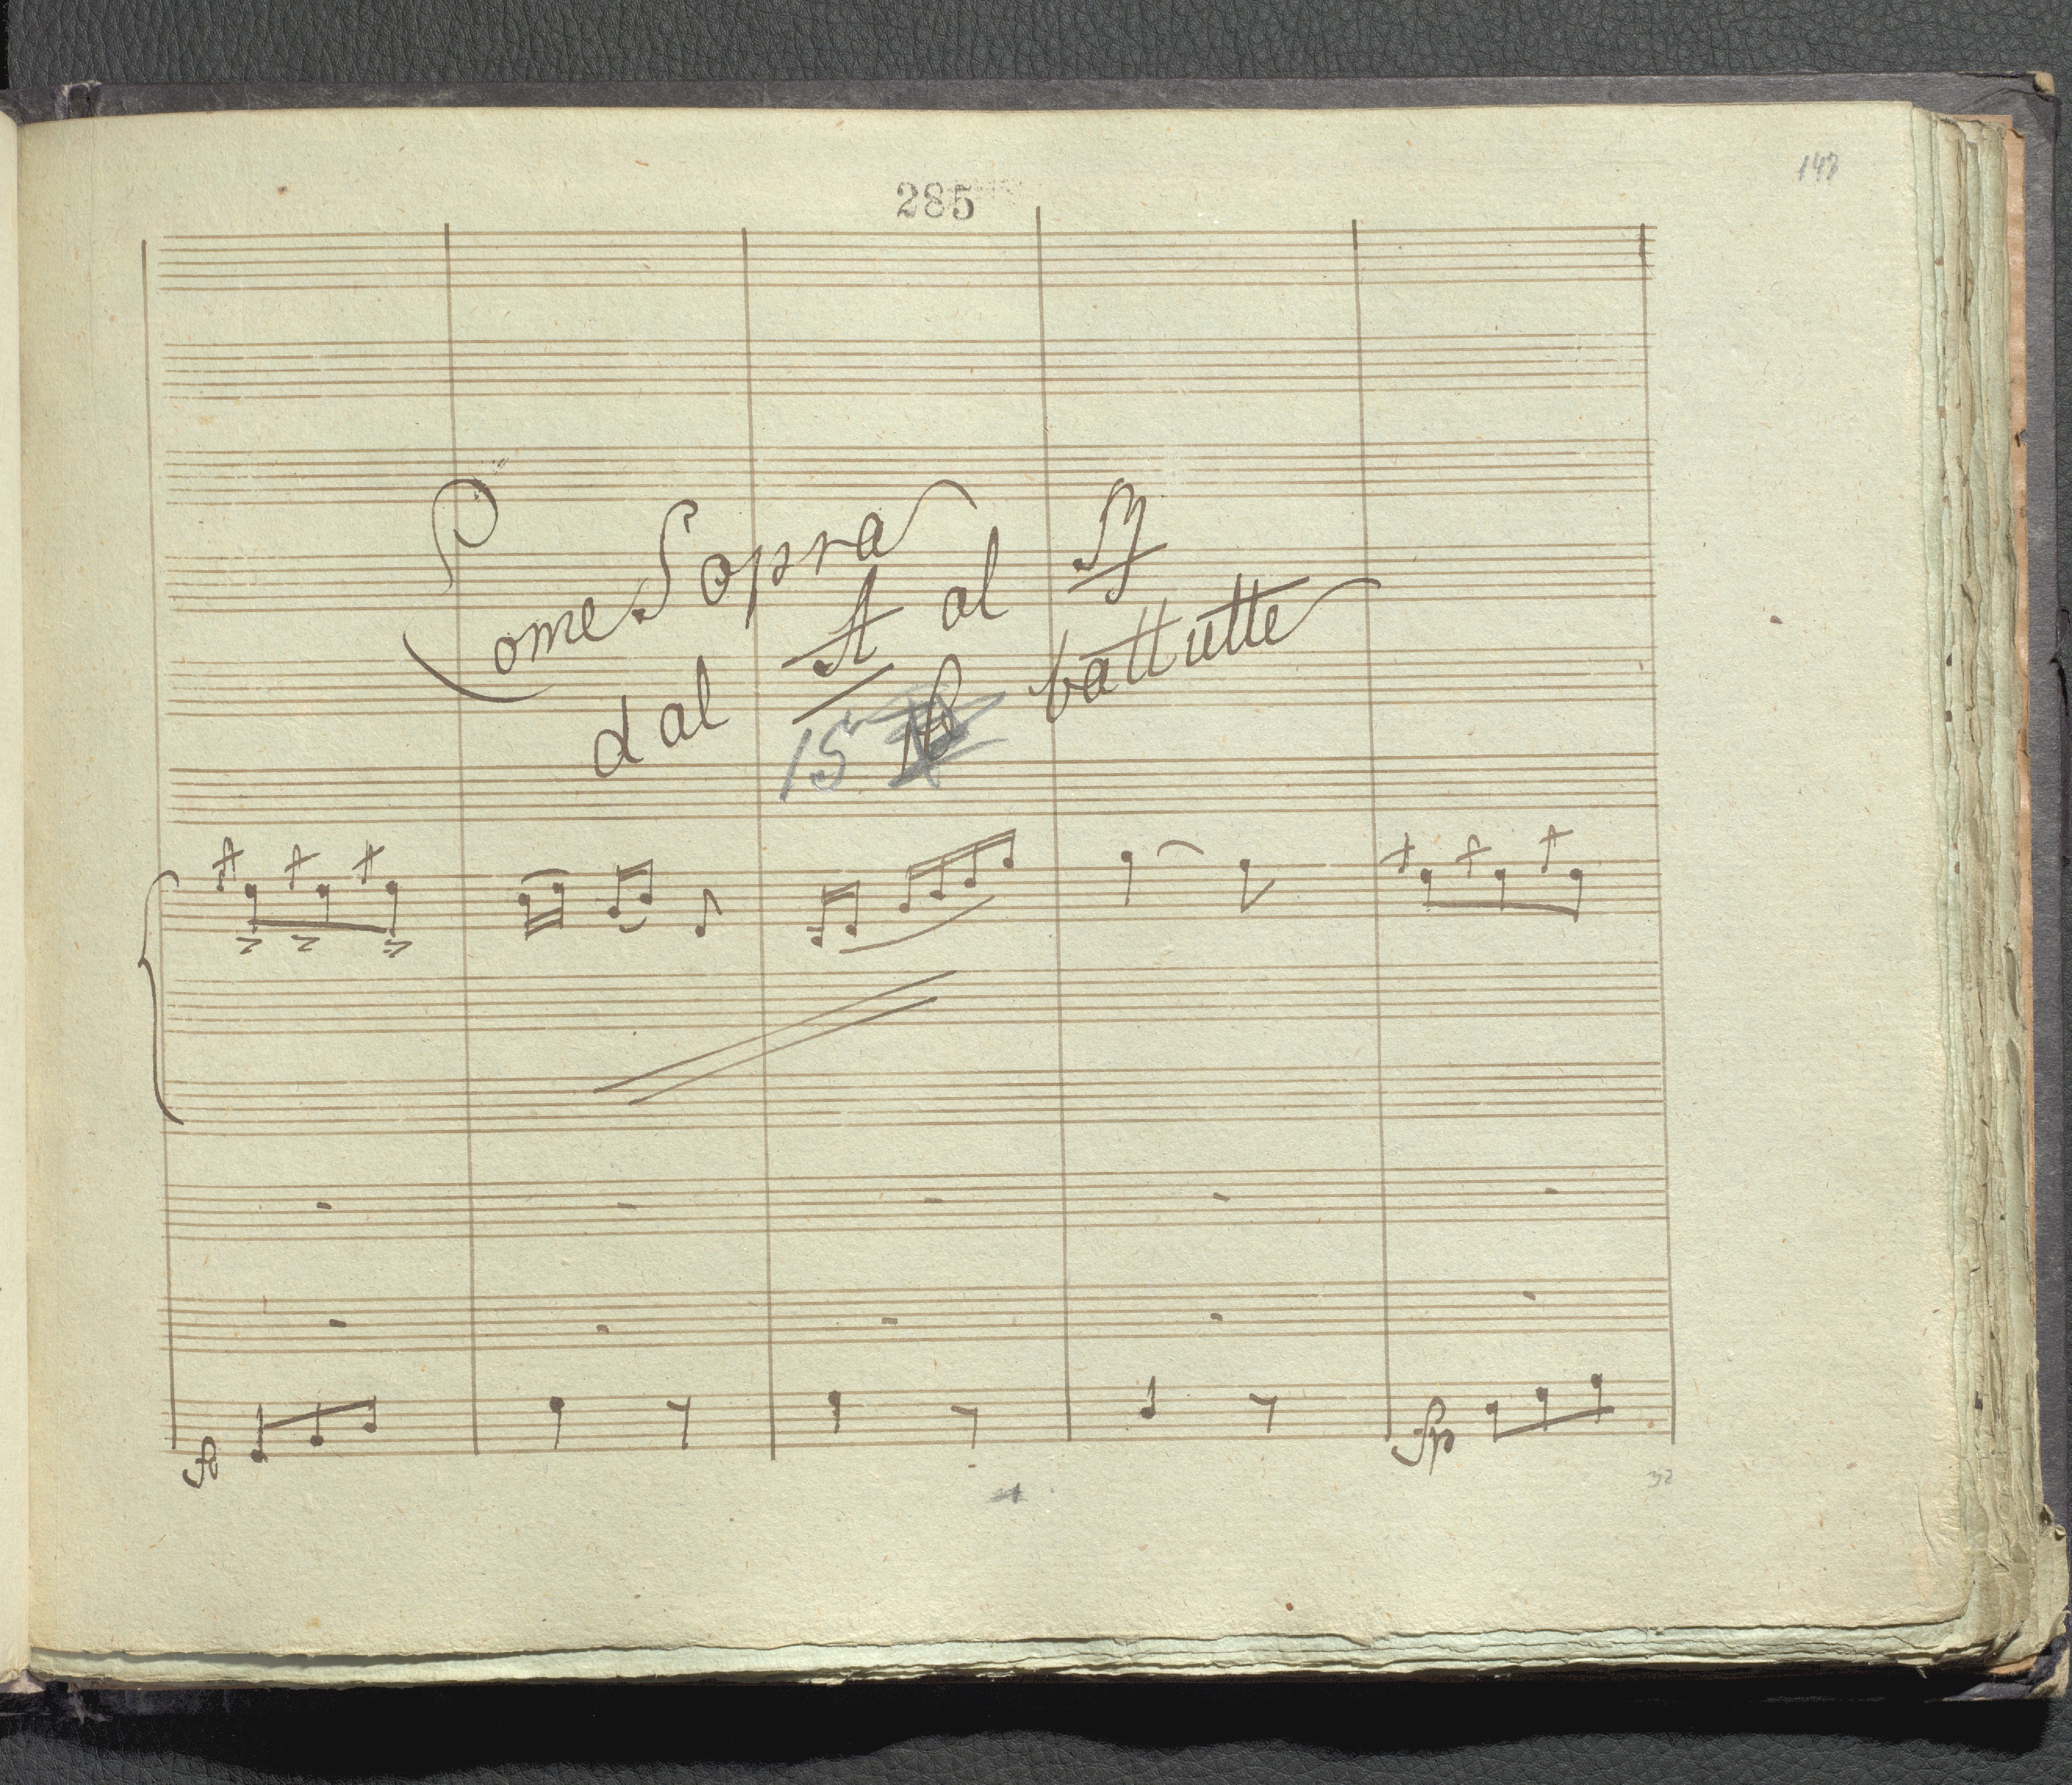 285
148
Come Sopra
dal A al B
15 battutte
fp
fp
32